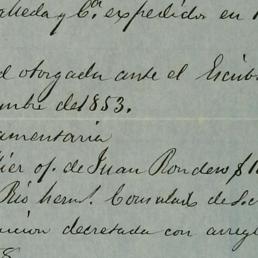 y Cª. expedidos en
otorgada ante el Escrib
mbre del 1853.
amentaria
of. de Juan Rondero $1
Rio herms. Consulado de
cion decretada con arregl